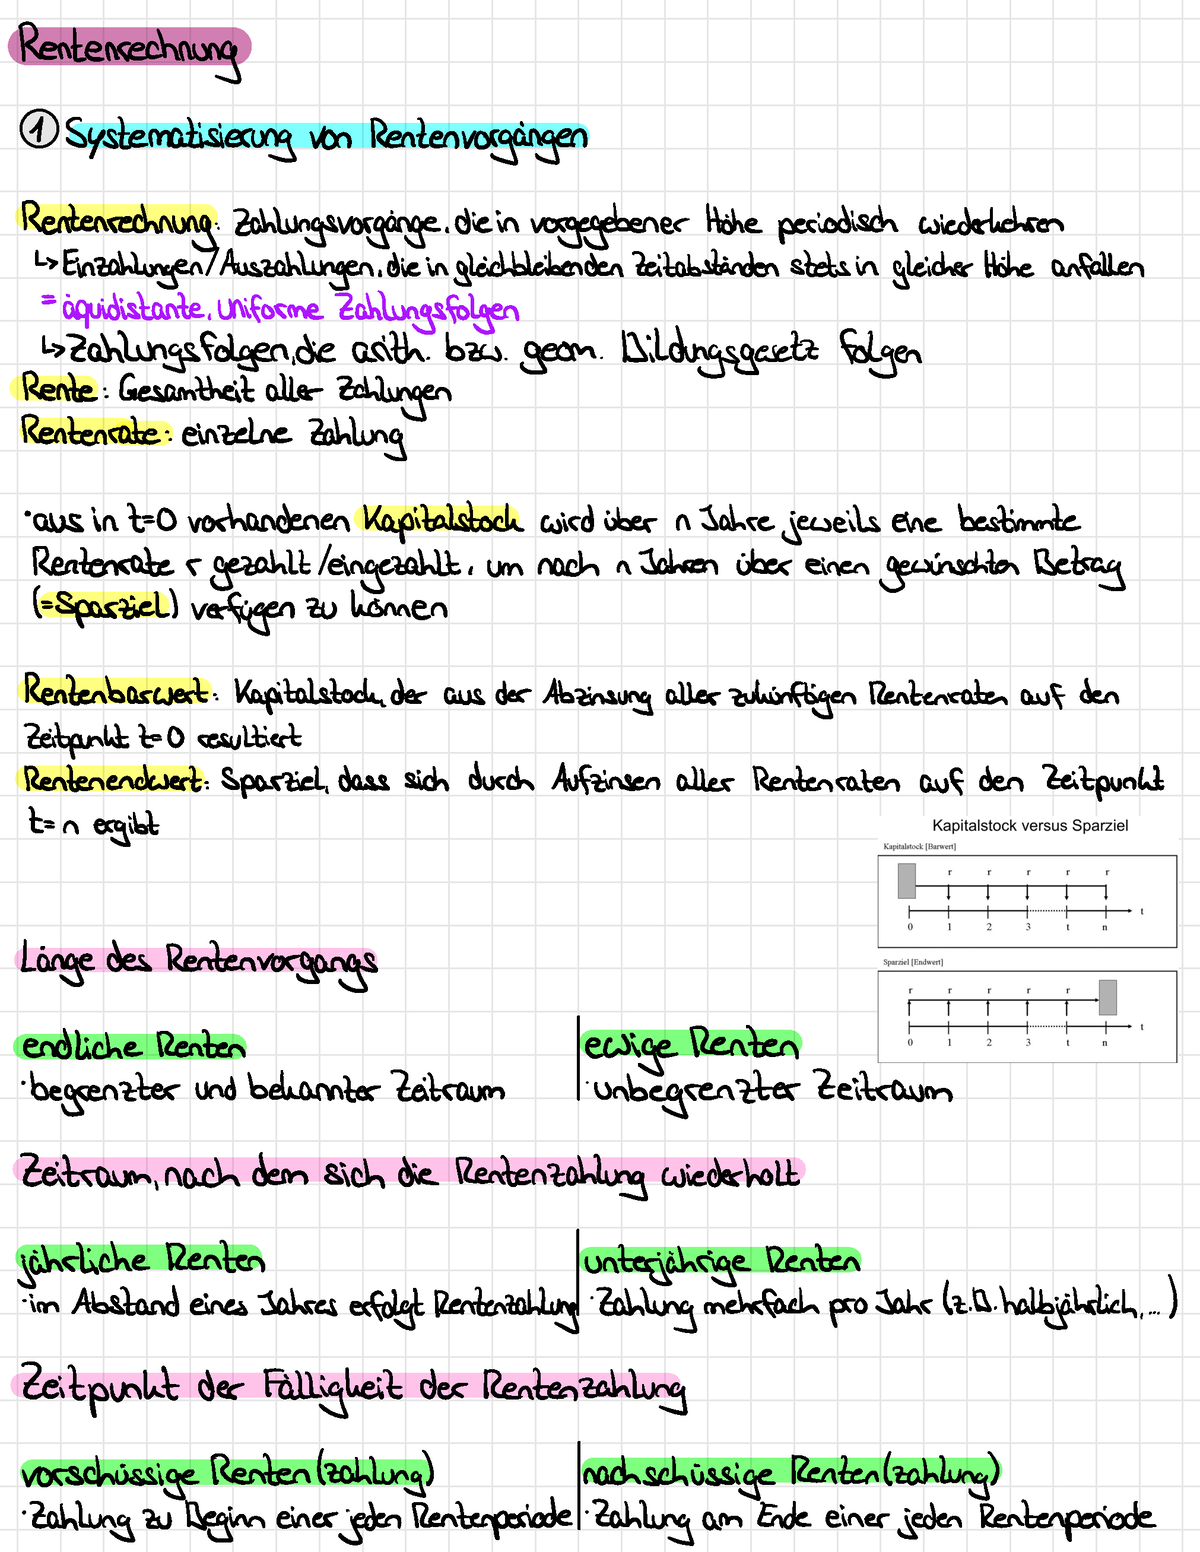 Rentenrechnung
1 Systematisierung von Rentenvorgängen
Rentenrechnung: Zahlungsvorgänge, die in vorgegebener Höhe periodisch wiederkehren
↳ Einzahlungen/Auszahlungen, die in gleichbleibenden Zeitabständen stets in gleicher Höhe anfallen
= äquidistante, uniforme Zahlungsfolgen
↳ Zahlungsfolgen, die arith. bzw. geom. Bildungsgesetz folgen
Rente: Gesamtheit aller Zahlungen
Rentenrate: einzelne Zahlung
· aus in t=0 vorhandenen Kapitalstock wird über n Jahre jeweils eine bestimmte
Rentenrate r gezahlt/eingezahlt, um nach n Jahren über einen gewünschten Betrag
(=Sparziel) verfügen zu können
Rentenbarwert: Kapitalstock, der aus der Abzinsung aller zukünftigen Rentenraten auf den
Zeitpunkt t=0 resultiert
Rentenendwert: Sparziel, dass sich durch Aufzinsen aller Rentenraten auf den Zeitpunkt
t=n ergibt
Kapitalstock versus Sparziel
Kapitalstock [Barwert]
r r r r r
t
0 1 2 3 t n
Sparziel [Endwert]
r r r r r
t
0 1 2 3 t n
Länge des Rentenvorgangs
endliche Renten
· begrenzter und bekannter Zeitraum
ewige Renten
· unbegrenzter Zeitraum
Zeitraum, nach dem sich die Rentenzahlung wiederholt
jährliche Renten
· im Abstand eines Jahres erfolgt Rentenzahlung
unterjährige Renten
· Zahlung mehrfach pro Jahr (z.B. halbjährlich, ...)
Zeitpunkt der Fälligkeit der Rentenzahlung
vorschüssige Renten(zahlung)
· Zahlung zu Beginn einer jeden Rentenperiode
nachschüssige Renten(zahlung)
· Zahlung am Ende einer jeden Rentenperiode